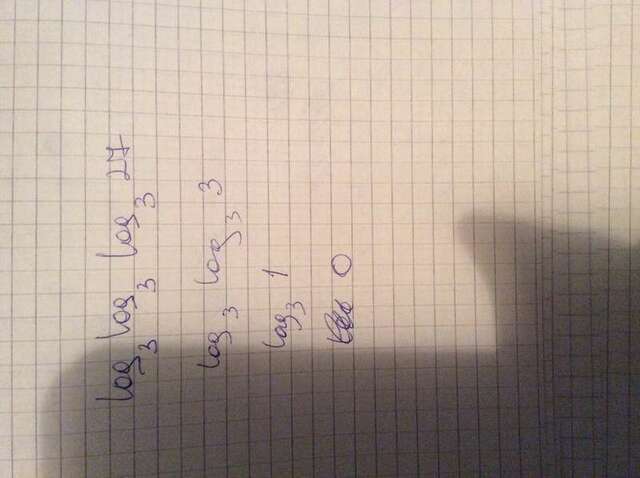 log₃ log₃ log₃ 27
log₃ log₃ 3
log₃ 1
0